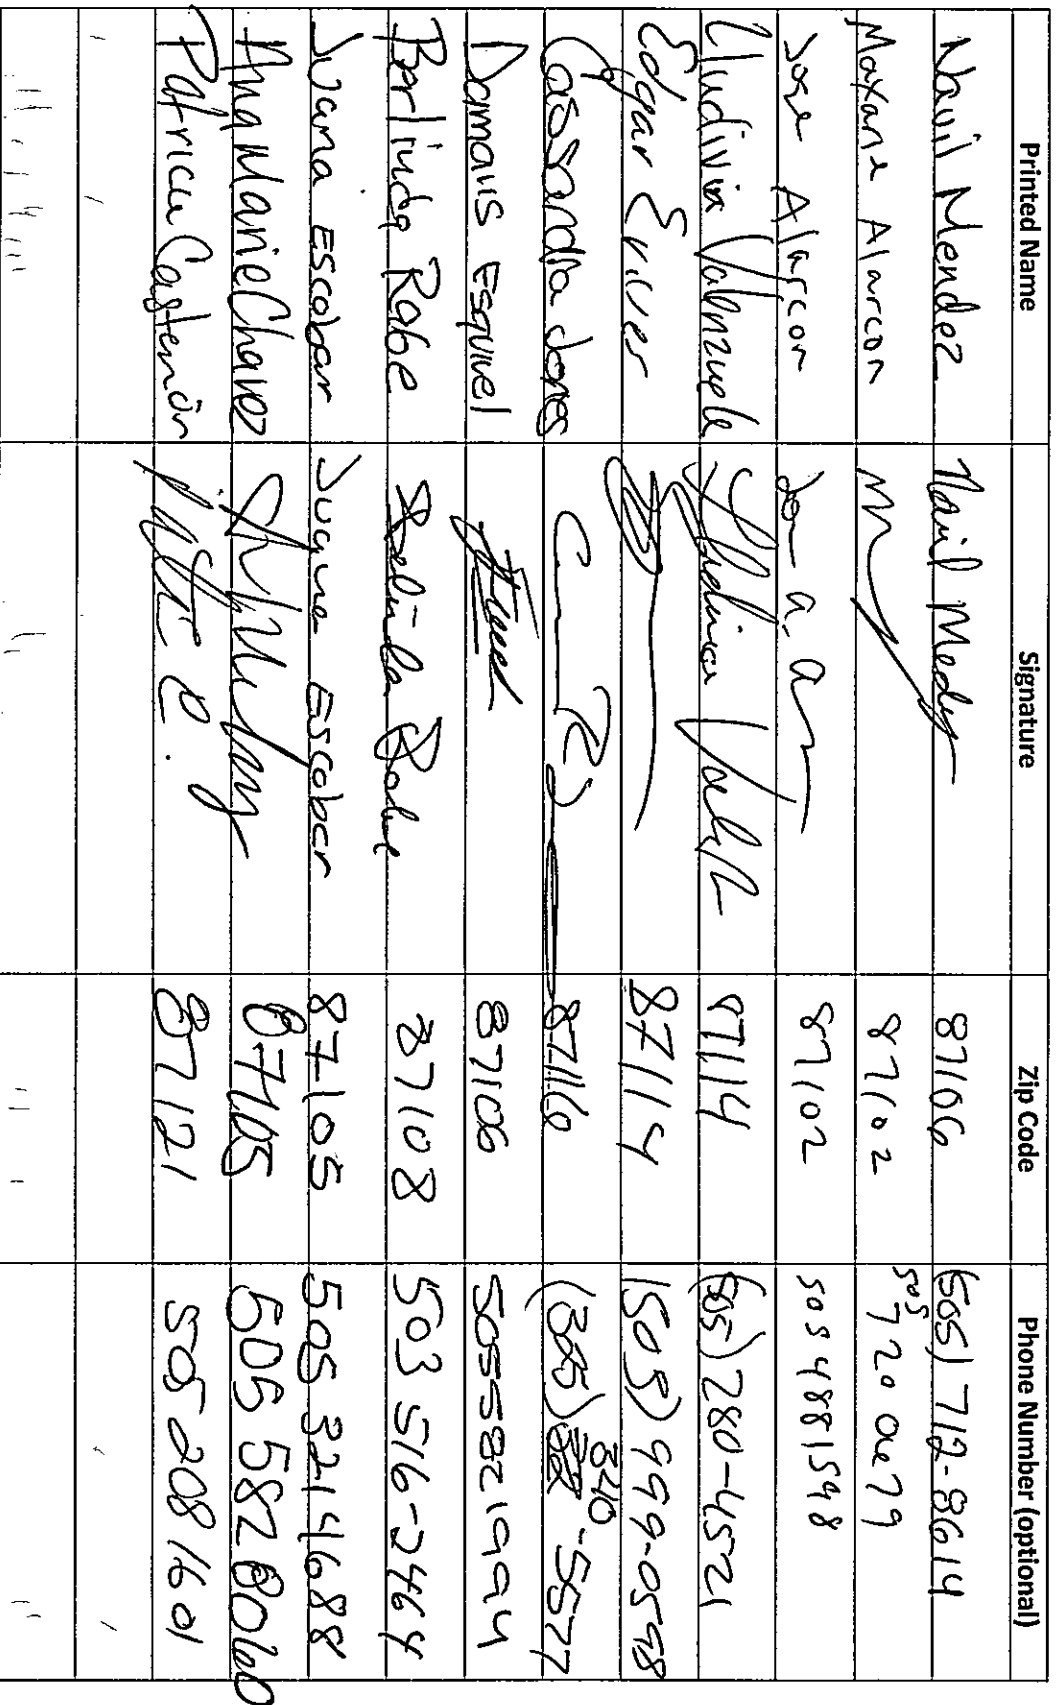 Printed Name Signature Zip Code Phone Number (optional)
Navil Mendez Navil 87106 (505) 712-8614
Maxane Alarcon M 87102 505 720 0e79
Jose Alarcon 87102 505 488 1598
Lludivia Valnzuela Lludivia 87114 (505) 280-4521
Edgar 87114 (505) 999-0558
Cassandra Jones 87116 (305) 340-5577
Damaris Esquivel 87106 5055821994
Berlinda Rabe 87108 503 516-2464
Juana Escobar Juana Escobar 87105 505 321 4688
Ana Marie Chavez 87105 505 582 8060
Patricia Castenon 87121 505 208 1601